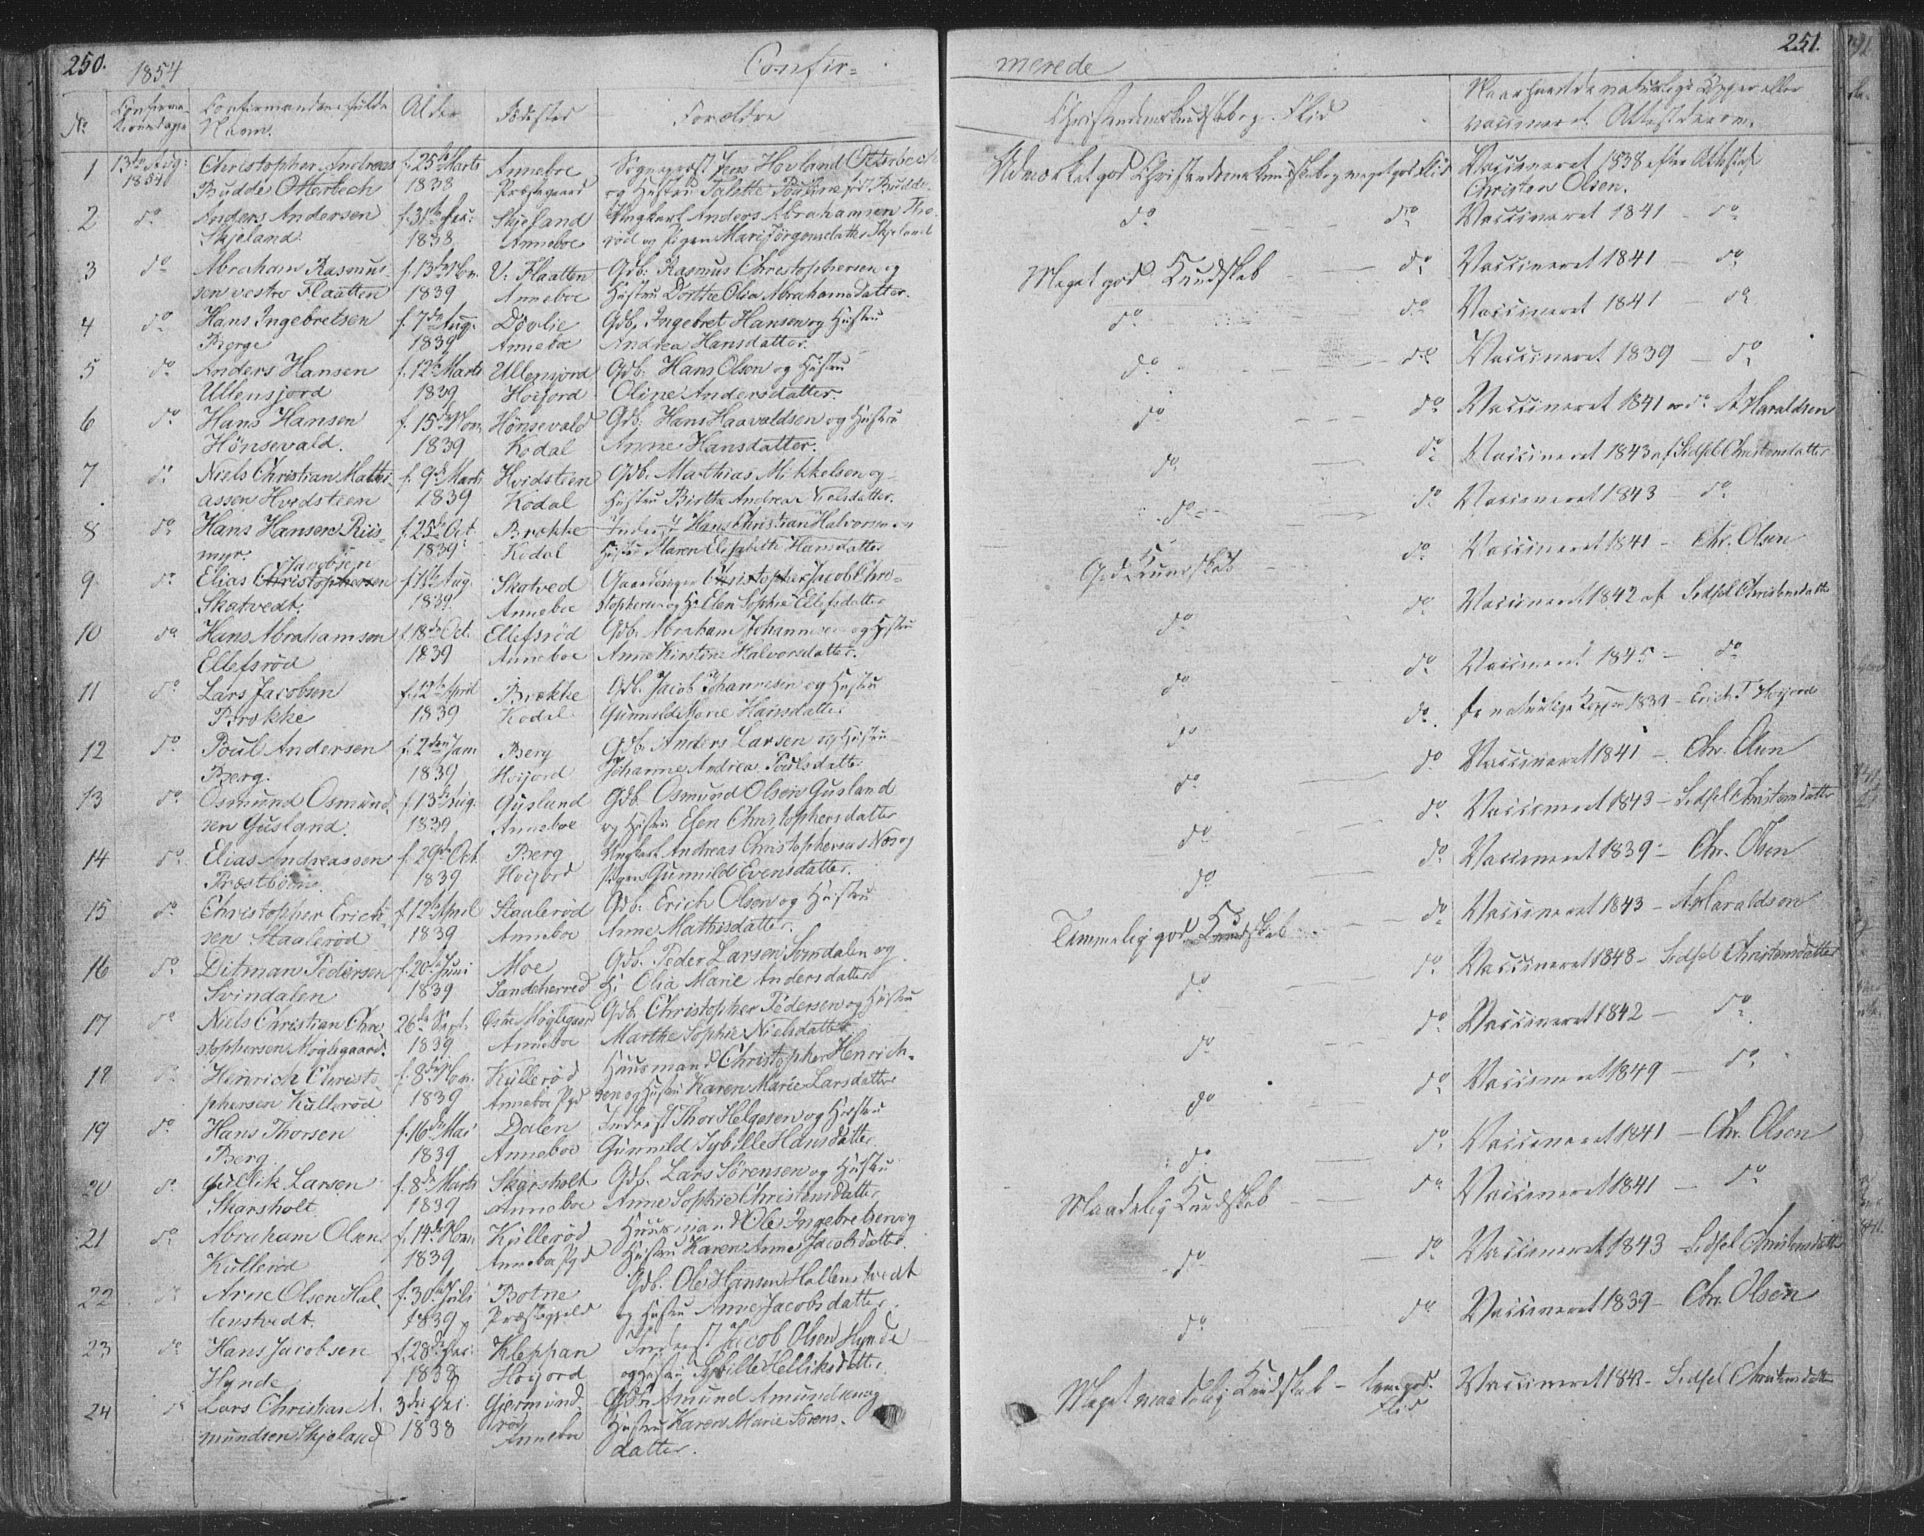 250.
1854
Confir-
No
Confirmandens fulde
Navn.
Alder
Fødested
Forældre
1 13de Aug: Christopher Andreas f. 25de Marts Anneboe Sognepræst Jens Hovland Otterbech
1854 Budde Otterbech 1838 Præstegaard og Hustru født Budde
2 do Anders Andersen f. 31te Skjeland Ungkarl Anders Abrahamsen Tho-
Skjeland 1838 Anneboe rød og Pigen Mari Jørgensdatter Skjeland
3 do Abraham Rasmus- f. 13de Nov. V. Flaatten Gdb. Rasmus Christophersen og
sen vestre Flaatten 1839 Anneboe Hustru Dorthe Olia Abrahamsdatter.
4 do Hans Ingebretsen f. 7de Aug. Døvlie Gdb. Ingebret Hansen og Hustru
Berge 1839 Anneboe Andrea Hansdatter.
5 do Anders Hansen f. 12te Marts Ullensjord Gdb. Hans Olsen og Hustru
Ullensjord 1839 Hoijord Oline Andersdatter.
6 do Hans Hansen f. 15de Nov. Hønsevald Gdb. Hans Haavaldsen og Hustru
Hønsevald. 1839 Kodal Anne Hansdatter.
7 do Niels Christian Mathi- f. 9de Marts Hvidsteen Gdb. Mathias Mikkelsen og
assen Hvidsteen 1839 Kodal Hustru Birthe Andrea Nielsdatter.
8 do Hans Hansen Riis- f. 25de Oct. Brokke Inderst Hans Christian Halvorsen
myr. 1839 Kodal Hustru Maren Elisabeth Hansdatter
Jacobsen
9 do Elias Christophersen f. 11te Aug. Skatved Gaardbruger Christopher Jacob Chri-
Skatvedt. 1839 Anneboe stophersen og H. Elen Sophie Ellefsdatter
10 do Hans Abrahamsen f. 18de Oct. Ellefsrød Gdb. Abraham Johannesen og Hustru
Ellefsrød 1839 Anneboe Anne Kirstine Halvorsdatter.
11 do Lars Jacobsen f. 12te April Brokke Gdb. Jacob Johannesen og Hustru
Brokke 1839 Kodal Gunnild Marie Hansdatter
12 do Poul Andersen f. 2den Jan Berg Gdb. Anders Larsen og Hustru
Berg. 1839 Hoijord Johanne Andrea Poulsdatter
13 do Osmund Osmund- f. 13de Aug. Gusland Gdb. Osmund Olsen Gusland
sen Gusland. 1839 Anneboe og Hustru Elen Christophersdatter
14 do Elias Andreassen f. 29de Oct. Berg Ungkarl Andreas Christophersen Næs og
Præstbøen. 1839 Hoijord Pigen Gunnild Evensdatter.
15 do Christopher Erich- f. 12te April Staalerød Gdb. Erich Olsen og Hustru
sen Staalerød 1839 Anneboe Anne Mathisdatter.
16 do Ditman Pedersen f. 20de Juni Moe Gdb. Peder Larsen Svindalen og
Svindalen 1839 Sandeherred H. Olia Marie Andersdatter
17 do Niels Christian Chri- 26de Sept. Østre Møglegaard Gdb. Christopher Pedersen og Hustru
stophersen Møglegaard. 1839 Anneboe Marthe Sophie Nielsdatter
18 do Henrich Christo- f. 8de Nov. Kullerød Huusmand Christopher Henrich-
phersen Kullerød 1839 Anneboe Pgd sen og Hustru Karen Marie Larsdatter
19 do Hans Thorsen f. 16de Mai Dalen Inderst Thor Helgesen og Hustru
Berg 1839 Anneboe Gunnild Sybille Hansdatter
20 do Gullik Larsen f. 8de Marts Skarsholt Gdb. Lars Sørensen og Hustru
Skarsholt 1839 Anneboe Anne Sophie Christensdatter
21 do Abraham Olsen f. 14de Nov. Kullerød Huusmand Ole Ingebretsen og
Kullerød 1839 Anneboe Pgd Hustru Karen Anne Jacobsdatter.
22 do Arne Olsen Hal- f. 30te Juli Botne Gdb. Ole Hansen Hallenstvedt
lenstvedt. 1839 Præstegjeld og Hustru Anne Jacobsdatter.
23 do Hans Jacobsen f. 28de Kleppan Inderst Jacob Olsen Hynde
Hynde 1838 Hoijord og Hustru Sybille Helliksdatter
24 do Lars Christian A- 3die Gjermund- Gdb. Amund Amundsen og
mundsen Skjeland 1838 rød Anneboe Hustru Karen Marie Sørens-
datter.
251.
merede
Christendomskundskab og Flid
vaccineret. Attest derom.
Udmærket god Christendomskundskab og meget god Flid Vaccineret 1838 efter Attest af
Christen Olsen.
do do Vaccineret 1841 - do
Meget god Kundskab do Vaccineret 1841 - do
do do Vaccineret 1841 - do
do do Vaccineret 1839 - do
do do Vaccineret 1841 A Haraldsen
do do Vaccineret 1843 af Sedsel Christensdatter
do do Vaccineret 1843 - do
God Kundskab do Vaccineret 1841 - Chr. Olsen
do do Vaccineret 1842 af Sedsel Christensdatter
do do Vaccineret 1845 - do
do do naturlige Kopper 1839 - Erich T. Hoijord
do do Vaccineret 1841 - Chr. Olsen
do do Vaccineret 1843 - Sedsel Christensdatter
do do Vaccineret 1839 - Chr. Olsen
Temmelig god Kundskab do Vaccineret 1843 - A Haraldsen
do do Vaccineret 1848 - Sedsel Christensdatter
do do Vaccineret 1842 - do
do do Vaccineret 1849 - do
do do Vaccineret 1841 - Chr. Olsen
Maadelig Kundskab do Vaccineret 1841 - do
do do Vaccineret 1843 Sedsel Christensdatter
do do Vaccineret 1839 - Chr. Olsen
Meget maadelig Kundskab - temg. god Flid Vaccineret 1842 - Sedsel Christensdatter